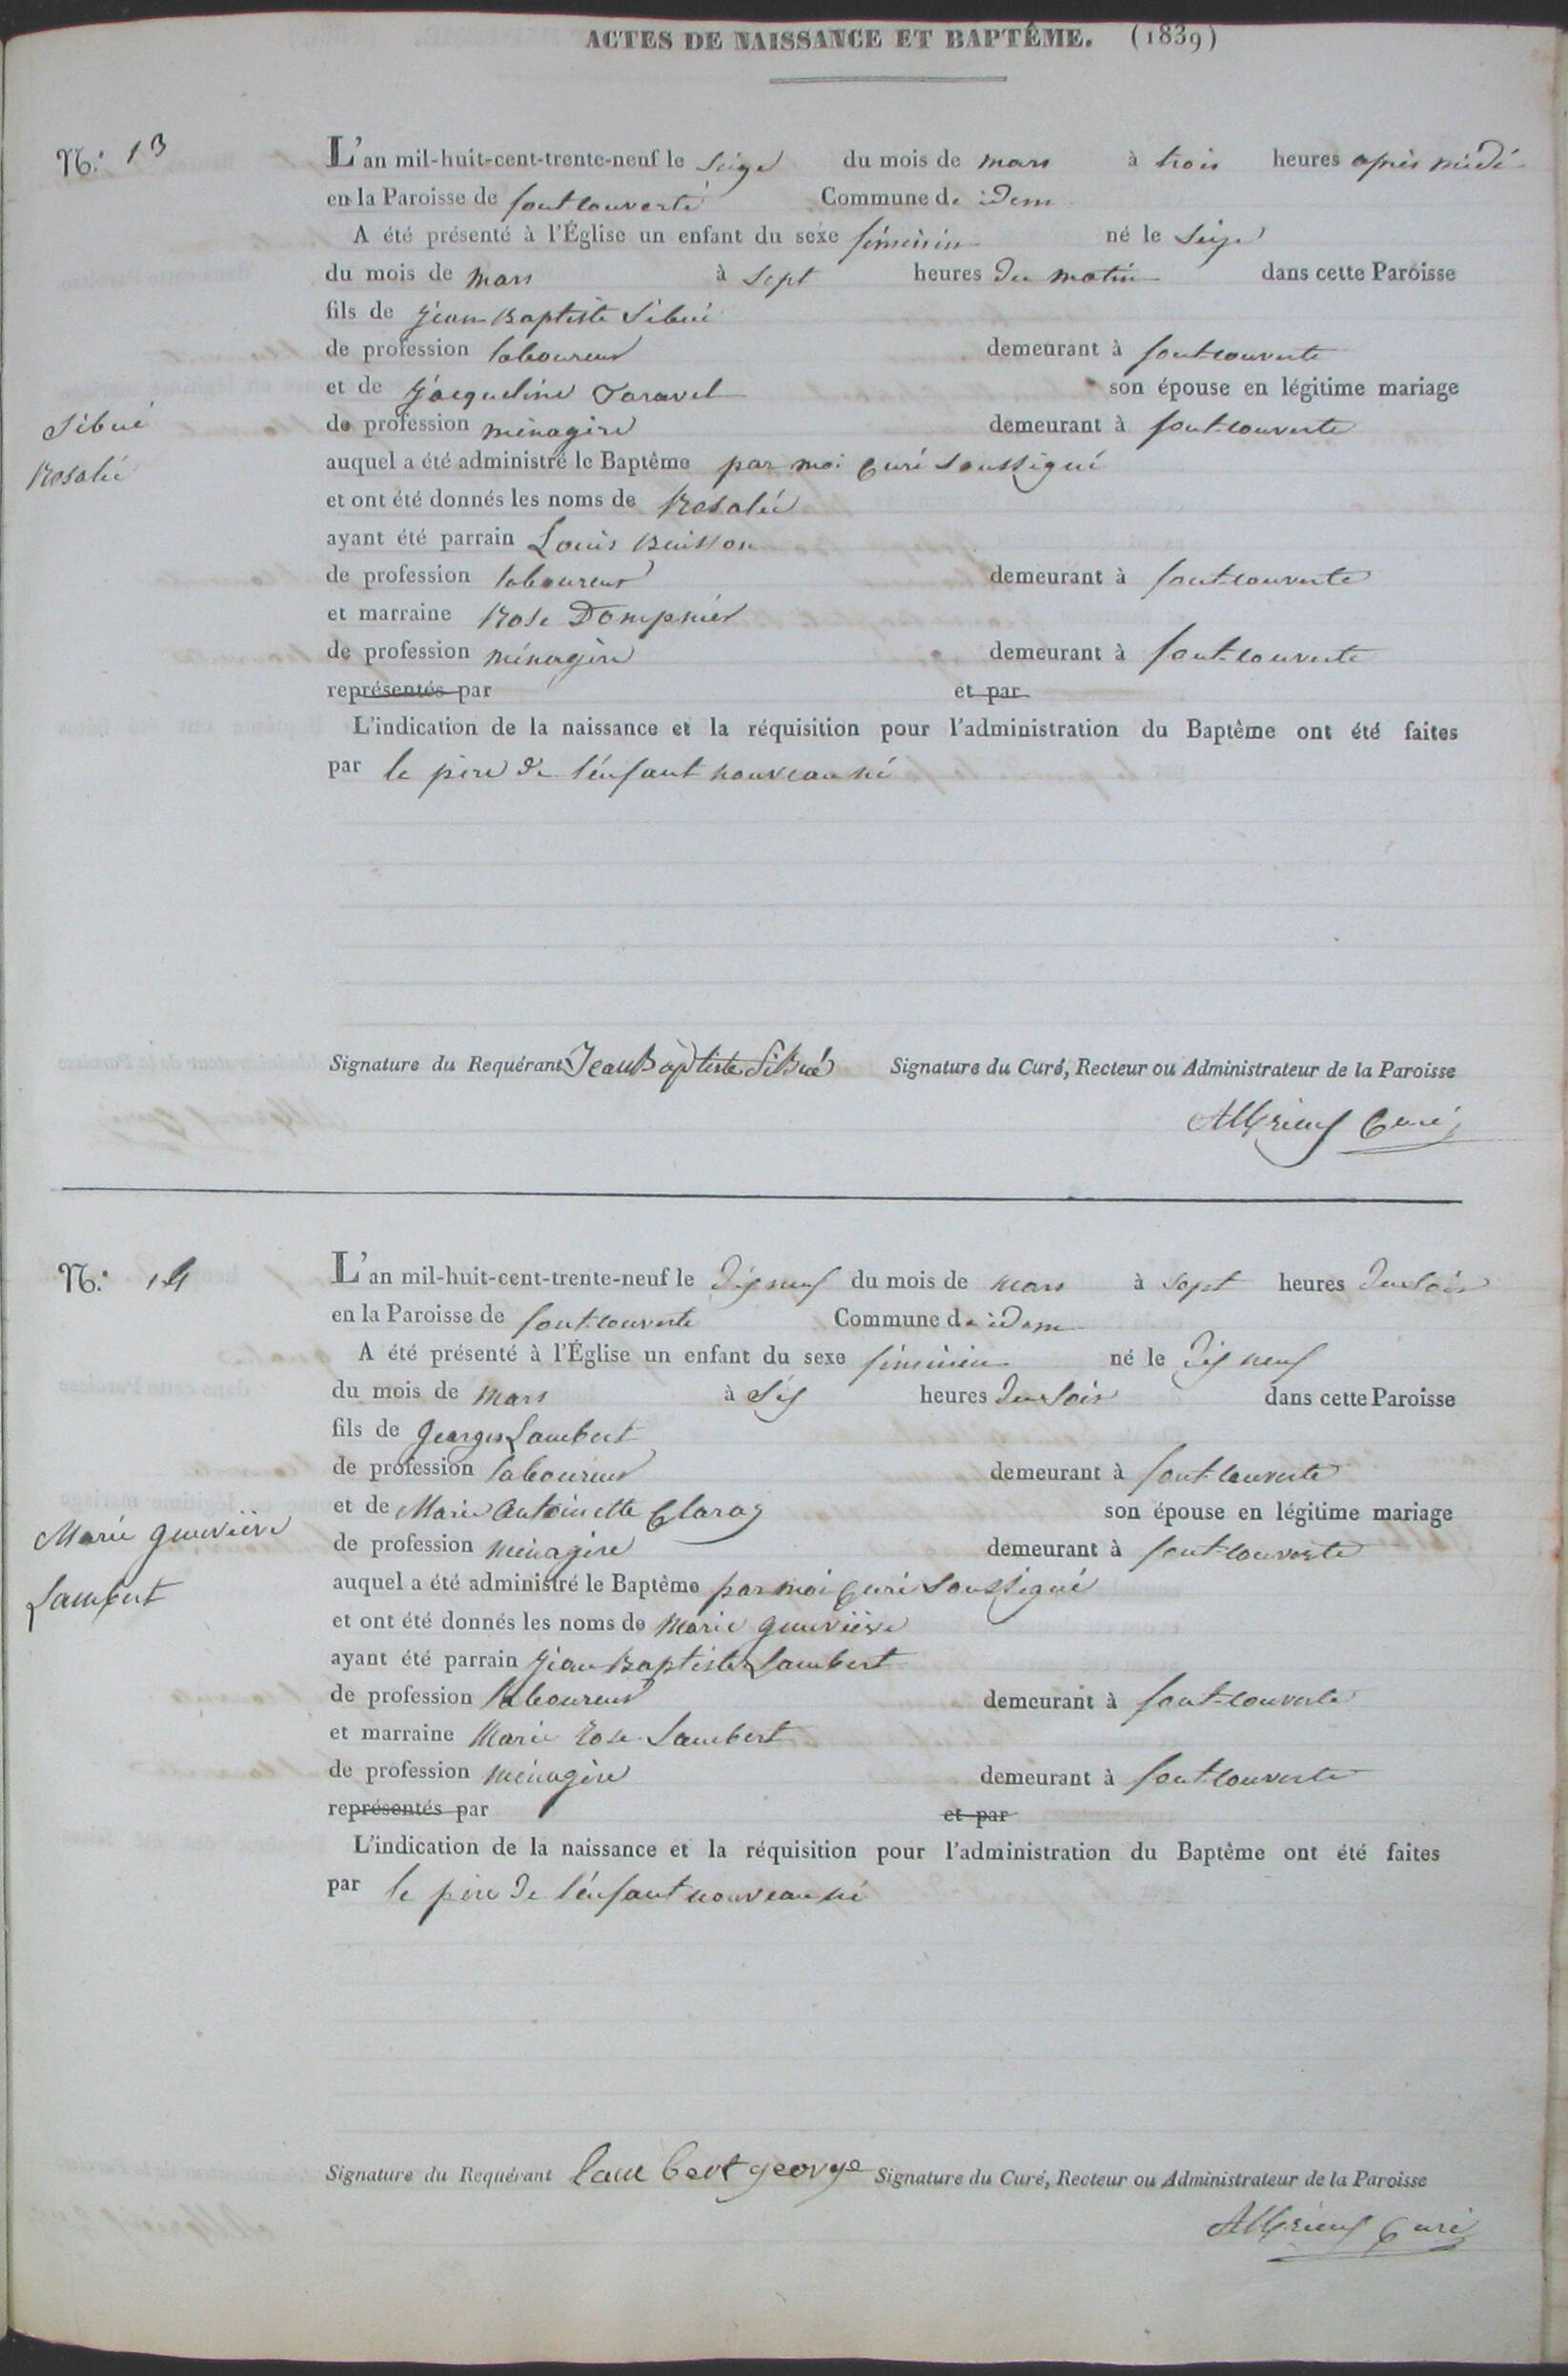 ACTES DE NAISSANCE ET BAPTÊME. (1839)
N.° 13
L'an mil-huit-cent-trente-neuf le seize du mois de mars à trois heures après midi
en la Paroisse de fontcouverte Commune de idem
A été présenté à l'Église un enfant du sexe féminin né le seize
du mois de mars à sept heures du matin dans cette Paroisse
fils de jean Baptiste Sibué
de profession laboureur demeurant à fontcouverte
et de jacqueline Taravel son épouse en légitime mariage
Sibué
de profession ménagère demeurant à font-couverte
Rosalie
auquel a été administré le Baptême par moi curé soussigné
et ont été donnés les noms de Rosalie
ayant été parrain Louis Buisson
de profession laboureur demeurant à font-couverte
et marraine Rose Dompnier
de profession ménagère demeurant à font-couverte
représentés par et par
L'indication de la naissance et la réquisition pour l'administration du Baptême ont été faites
par le père de l'enfant nouveau né
Signature du Requérant Jean Baptiste Sibué Signature du Curé, Recteur ou Administrateur de la Paroisse
Curé
N.° 14
L'an mil-huit-cent-trente-neuf le dix neuf du mois de mars à sept heures du soir
en la Paroisse de font-couverte Commune de idem
A été présenté à l'Église un enfant du sexe féminin né le dix neuf
du mois de mars à six heures du soir dans cette Paroisse
fils de georges Lambert
de profession laboureur demeurant à font-couverte
et de Marie Antoinette Claraz son épouse en légitime mariage
Marie genevieve
de profession ménagère demeurant à font-couverte
Lambert
auquel a été administré le Baptême par moi curé soussigné
et ont été donnés les noms de marie genevieve
ayant été parrain jean Baptiste Lambert
de profession laboureur demeurant à font-couverte
et marraine Marie rose Lambert
de profession ménagère demeurant à font-couverte
représentés par et par
L'indication de la naissance et la réquisition pour l'administration du Baptême ont été faites
par le père de l'enfant nouveau né
Signature du Requérant lambert george Signature du Curé, Recteur ou Administrateur de la Paroisse
curé